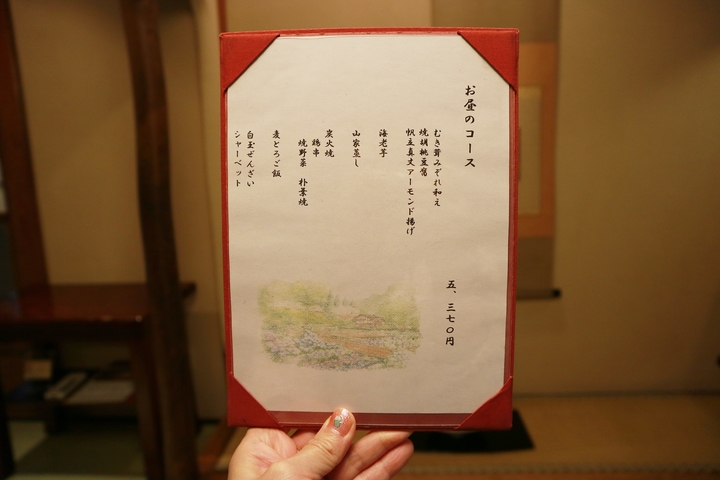 お昼のコース
五、三七〇円
むき茸みぞれ和え
焼胡桃豆腐
帆立真丈アーモンド揚げ
海老芋
山家蒸し
炭火焼
鶏串
焼野菜 朴葉焼
麦とろご飯
白玉ぜんざい
シャーベット